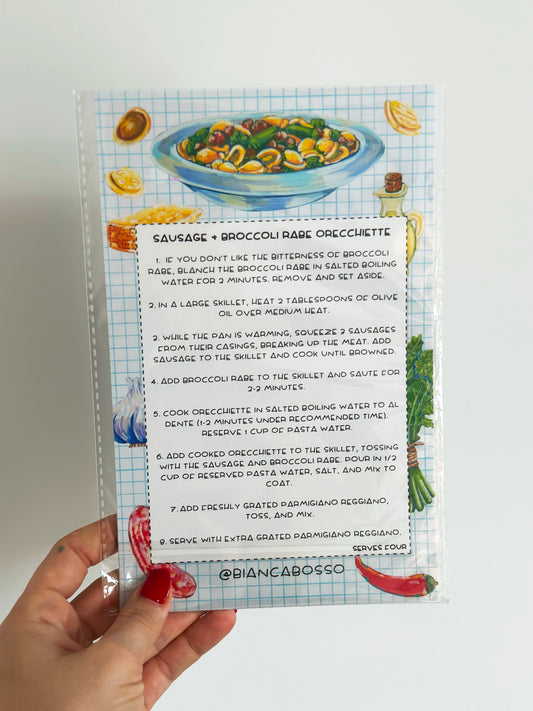 SAUSAGE + BROCCOLI RABE ORECCHIETTE
1. IF YOU DON'T LIKE THE BITTERNESS OF BROCCOLI
RABE, BLANCH THE BROCCOLI RABE IN SALTED BOILING
WATER FOR 2 MINUTES. REMOVE AND SET ASIDE.
2. IN A LARGE SKILLET, HEAT 2 TABLESPOONS OF OLIVE
OIL OVER MEDIUM HEAT.
3. WHILE THE PAN IS WARMING, SQUEEZE 3 SAUSAGES
FROM THEIR CASINGS, BREAKING UP THE MEAT. ADD
SAUSAGE TO THE SKILLET AND COOK UNTIL BROWNED.
4. ADD BROCCOLI RABE TO THE SKILLET AND SAUTE FOR
2-3 MINUTES.
5. COOK ORECCHIETTE IN SALTED BOILING WATER TO AL
DENTE (1-2 MINUTES UNDER RECOMMENDED TIME).
RESERVE 1 CUP OF PASTA WATER.
6. ADD COOKED ORECCHIETTE TO THE SKILLET, TOSSING
WITH THE SAUSAGE AND BROCCOLI RABE. POUR IN 1/2
CUP OF RESERVED PASTA WATER, SALT, AND MIX TO
COAT.
7. ADD FRESHLY GRATED PARMIGIANO REGGIANO,
TOSS, AND MIX.
8. SERVE WITH EXTRA GRATED PARMIGIANO REGGIANO.
SERVES FOUR
@BIANCABOSSO